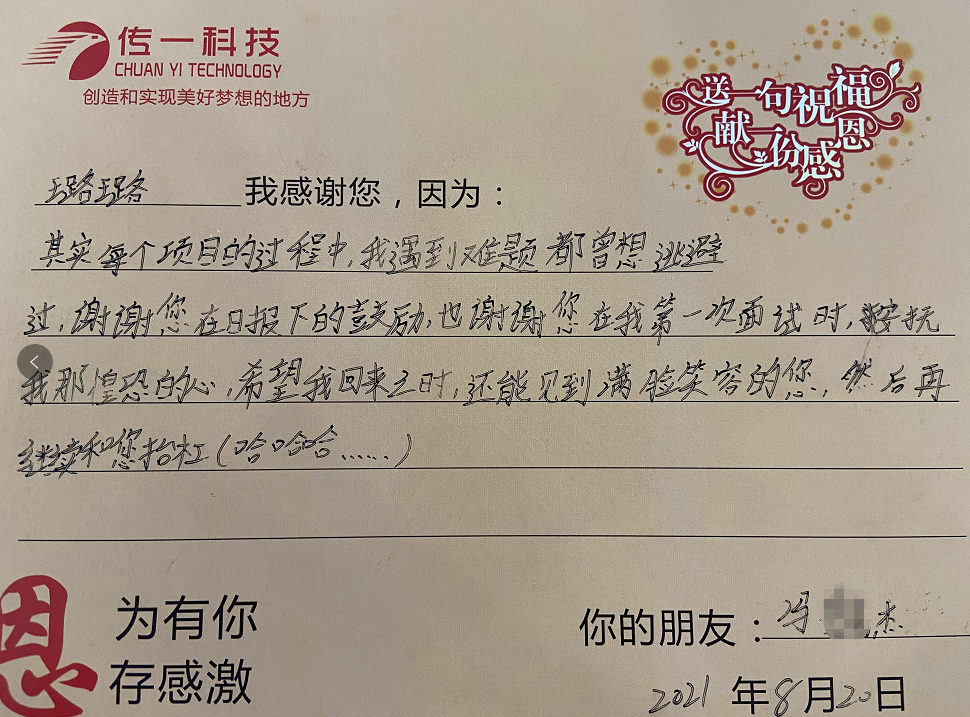 传一科技
CHUAN YI TECHNOLOGY
创造和实现美好梦想的地方
送一句祝福
献一份感恩
璐璐 我感谢您，因为：
其实每个项目的过程中,我遇到难题都曾想逃避
过,谢谢您在日报下的鼓励,也谢谢您在我第一次面试时,安抚
我那惶恐的心,希望我回来之时,还能见到满脸笑容的您,然后再
继续和您抬杠(哈哈哈......)
恩
为有你
存感激
你的朋友：冯 杰
2021年8月20日